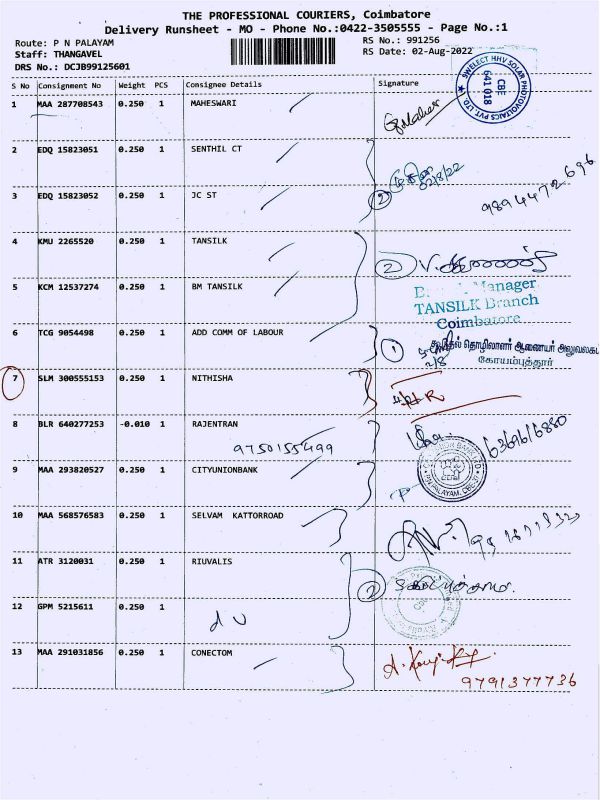 THE PROFESSIONAL COURIERS, Coimbatore
Delivery Runsheet - MO - Phone No.:0422-3505555 - Page No.:1
Route: P N PALAYAM
Staff: THANGAVEL
DRS No.: DCJB99125601
RS No.: 991256
RS Date: 02-Aug-2022
S No Consignment No Weight PCS Consignee Details Signature
SWELECT HHV SOLAR PHOTOVOLTAICS PVT. LTD.
CBE
641 018
1 MAA 287708543 0.250 1 MAHESWARI
2 EDQ 15823051 0.250 1 SENTHIL CT
02/8/22
3 EDQ 15823052 0.250 1 JC ST
2
9894472696
4 KMU 2265520 0.250 1 TANSILK
2
5 KCM 12537274 0.250 1 BM TANSILK
Manager
TANSILK Branch
Coimbatore
6 TCG 9054498 0.250 1 ADD COMM OF LABOUR
1
தொழிலாளர் ஆணையர் அலுவலகம்
கோயம்புத்தூர்
7 SLM 300555153 0.250 1 NITHISHA
8 BLR 640277253 -0.010 1 RAJENTRAN
9750155499
9 MAA 293820527 0.250 1 CITYUNIONBANK
10 MAA 568576583 0.250 1 SELVAM KATTORROAD
11 ATR 3120031 0.250 1 RIUVALIS
2
12 GPM 5215611 0.250 1
13 MAA 291031856 0.250 1 CONECTOM
9791377736